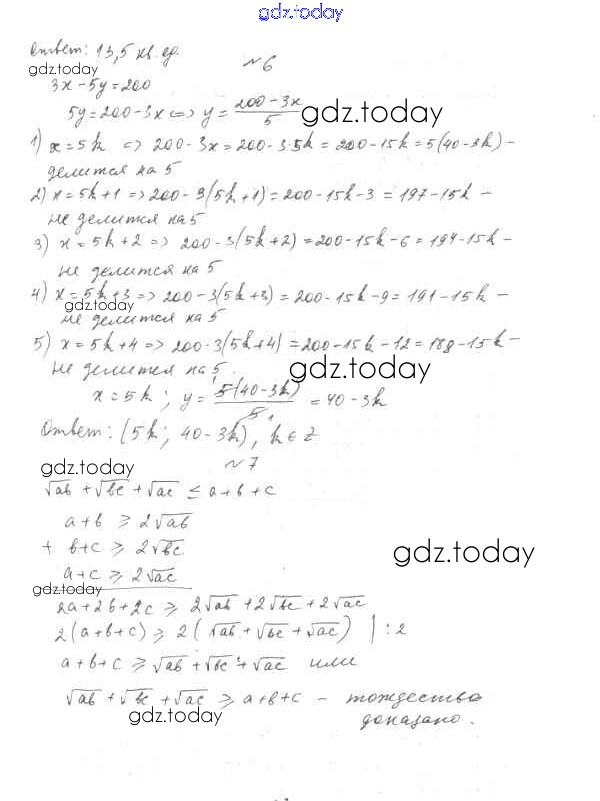 gdz.today
Ответ: 13,5 кв. ед.
gdz.today
№6
3x - 5y = 200
5y = 200 - 3x ⇔ y = (200 - 3x)/5
gdz.today
1) x = 5k ⇒ 200 - 3x = 200 - 3·5k = 200 - 15k = 5(40 - 3k) -
делится на 5
2) x = 5k + 1 ⇒ 200 - 3(5k + 1) = 200 - 15k - 3 = 197 - 15k -
не делится на 5
3) x = 5k + 2 ⇒ 200 - 3(5k + 2) = 200 - 15k - 6 = 194 - 15k -
не делится на 5
4) x = 5k + 3 ⇒ 200 - 3(5k + 3) = 200 - 15k - 9 = 191 - 15k -
gdz.today
не делится на 5
5) x = 5k + 4 ⇒ 200 - 3(5k + 4) = 200 - 15k - 12 = 188 - 15k -
не делится на 5.
gdz.today
x = 5k ; y = 5(40 - 3k)/5 = 40 - 3k
Ответ: (5k ; 40 - 3k), k ∈ Z
№7
gdz.today
√ab + √bc + √ac ≤ a + b + c
a + b ⩾ 2√ab
+ b + c ⩾ 2√bc
gdz.today
a + c ⩾ 2√ac
gdz.today
2a + 2b + 2c ⩾ 2√ab + 2√bc + 2√ac
2(a + b + c) ⩾ 2(√ab + √bc + √ac) | : 2
a + b + c ⩾ √ab + √bc + √ac или
√ab + √bc + √ac ⩾ a + b + c - тождество
gdz.today
доказано.